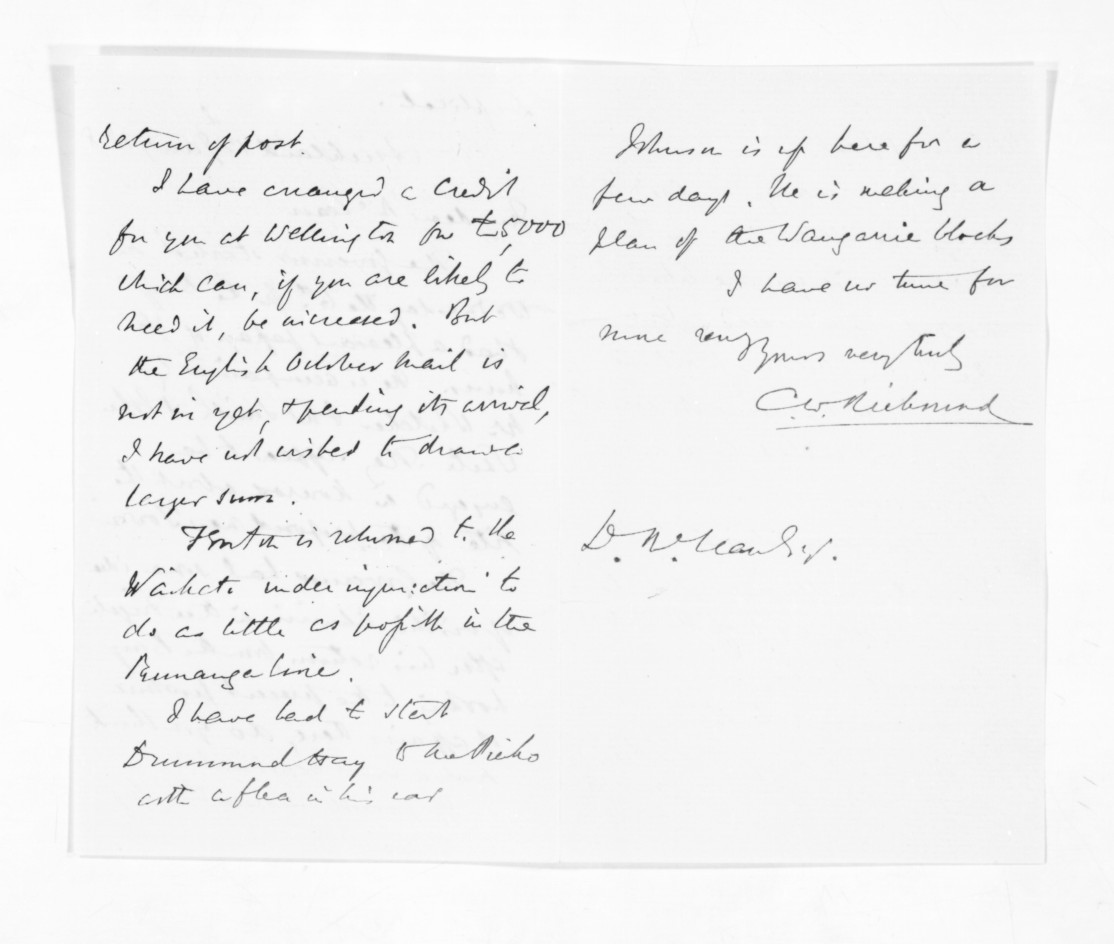 return of post.
I have arranged a credit
for you at Wellington for £5,000
which can, if you are likely to
need it, be increased. But
the English October mail is
not in yet, & pending its arrival,
I have not wished to draw a
larger sum.
Fenton is returned to the
Waikato under injunction to
do as little as possible in the
Runanga line.
I have had to start
Drummond Hay to the Piako
with a flea in his ear
Johnson is up here for a
few days. He is making a
plan of the Wangarie blocks
I have no time for
more
yours very truly
C.W. Richmond
D. McLean Esq.